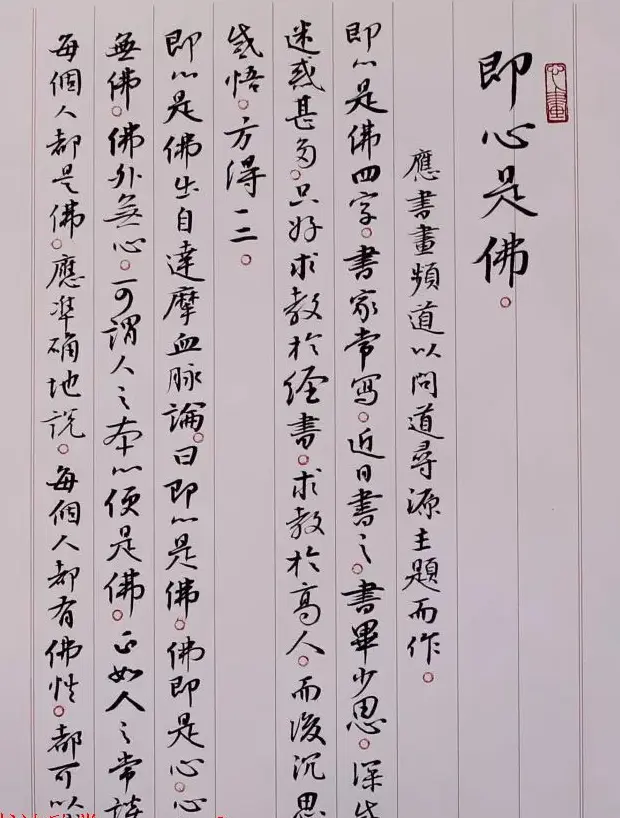 即心是佛。
應書畫頻道以問道尋源主題而作。
即心是佛四字。書家常写。近日書之。書畢少思。深生
迷惑甚多。只好求教於經書。求教於高人。而後沉思
感悟。方得一二。
即心是佛出自達摩血脉論。曰即心是佛。佛即是心。心
無佛。佛外無心。可謂人之本心便是佛。正如人之常談
每個人都是佛。應準确地説。每個人都有佛性。都可以